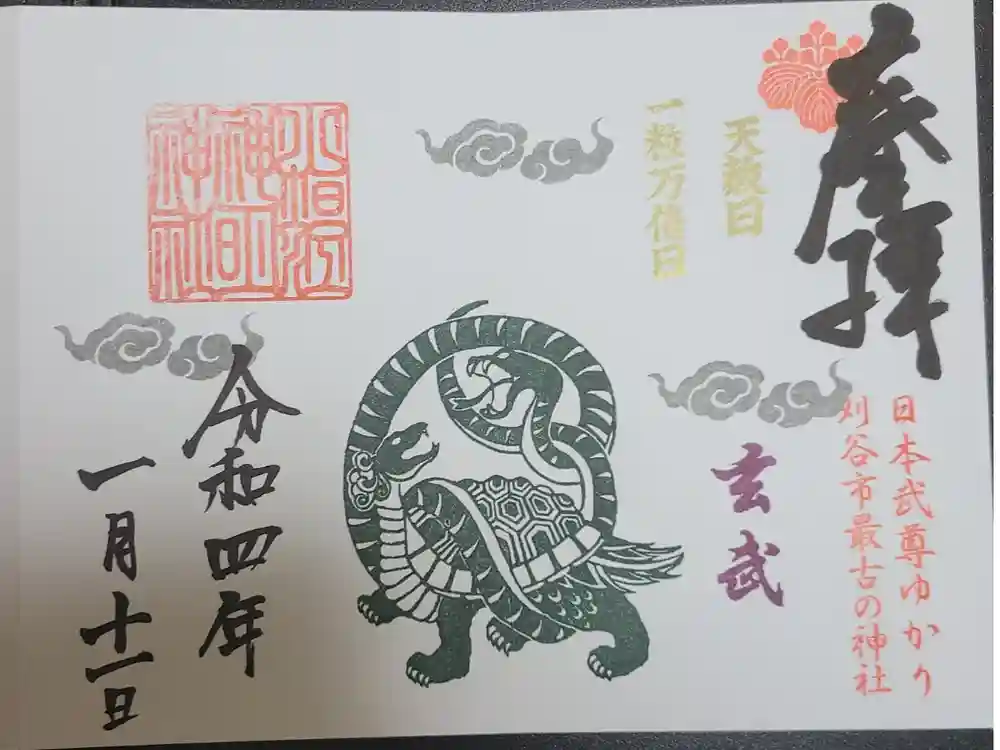 奉拝
天赦日
一粒万倍日
日本武尊ゆかり
刈谷市最古の神社
玄武
小垣江
神明
神社
令和四年
一月十一日